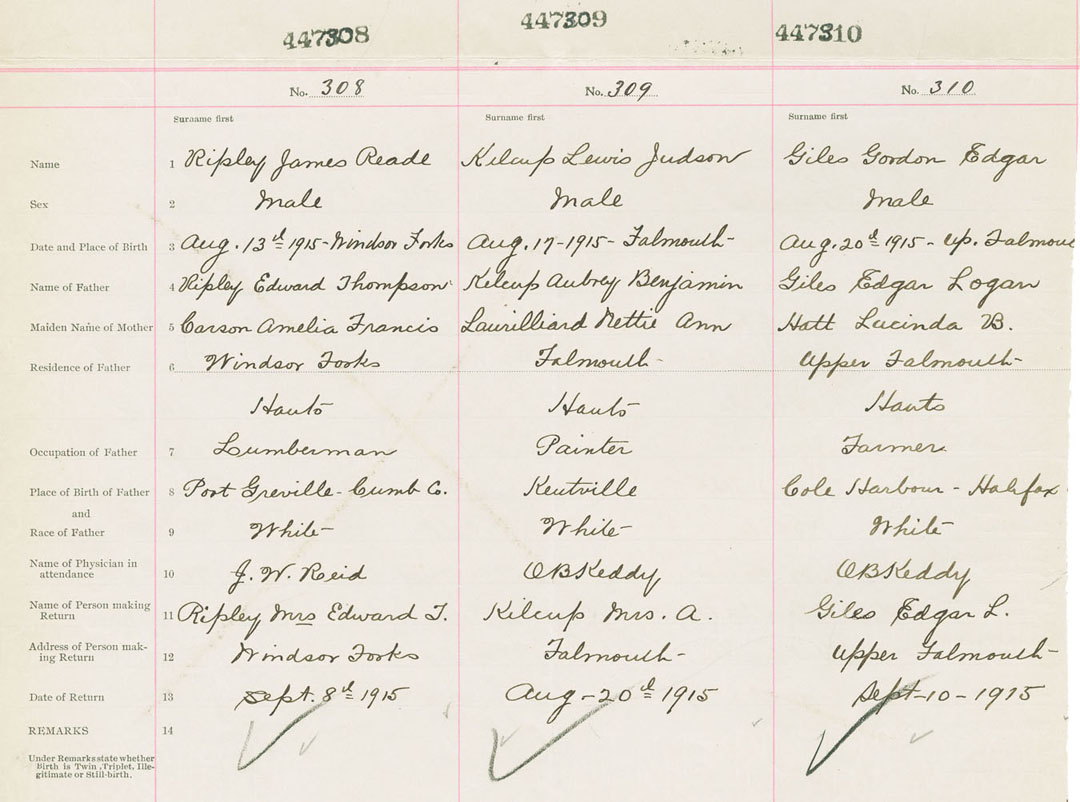 447308 447309 447310
No. 308 No. 309 No. 310
Surname first Surname first Surname first
Name 1 Ripley James Reade Kilcup Lewis Judson Giles Gordon Edgar
Sex 2 Male Male Male
Date and Place of Birth 3 Aug. 13th 1915 - Windsor Forks Aug. 17 - 1915 - Falmouth - Aug. 20th 1915 - Up. Falmou
Name of Father 4 Ripley Edward Thompson Kilcup Aubrey Benjamin Giles Edgar Logan
Maiden Name of Mother 5 Carson Amelia Francis Laurilliard Nettie Ann Hatt Lucinda B.
Residence of Father 6 Windsor Forks Falmouth - Upper Falmouth -
Hants Hants Hants
Occupation of Father 7 Lumberman Painter Farmer
Place of Birth of Father 8 Port Greville - Cumb Co. Kentville Cole Harbour - Halifax
and
Race of Father 9 White - White - White
Name of Physician in
attendance 10 J. W. Reid O B Keddy O B Keddy
Name of Person making
Return 11 Ripley Mrs Edward T. Kilcup Mrs. A. Giles Edgar L.
Address of Person mak-
ing Return 12 Windsor Forks Falmouth - Upper Falmouth -
Date of Return 13 Sept. 8th 1915 Aug - 20th 1915 Sept - 10 - 1915
REMARKS 14
Under Remarks state whether
Birth is Twin, Triplet, Ille-
gitimate or Still-birth.